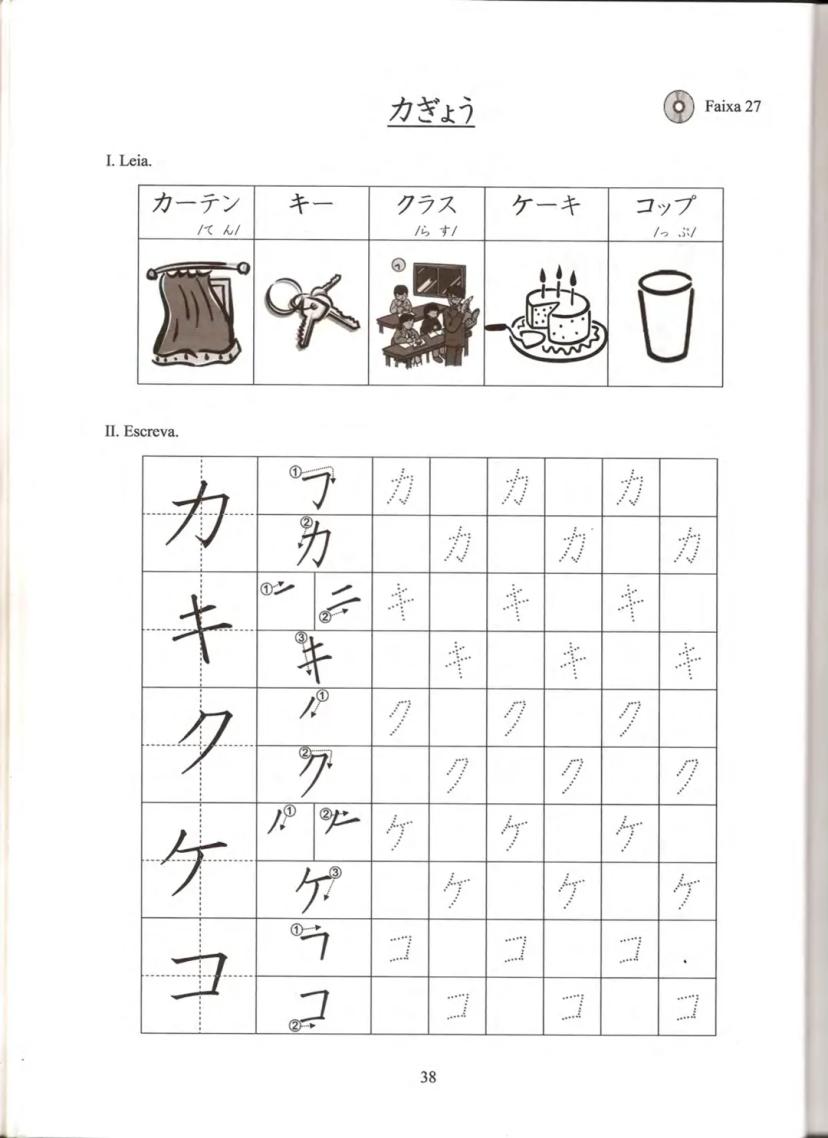 カぎょう
Faixa 27
I. Leia.
カーテン キー クラス ケーキ コップ
/て ん/ /ら す/ /っ ぷ/
II. Escreva.
カ ① フ カ カ カ
② カ カ カ カ
キ ① ② キ キ キ
③ キ キ キ キ
ク ① ク ク ク
② ク ク ク ク
ケ ① ② ケ ケ ケ
③ ケ ケ ケ ケ
コ ① コ コ コ
② コ コ コ コ
38